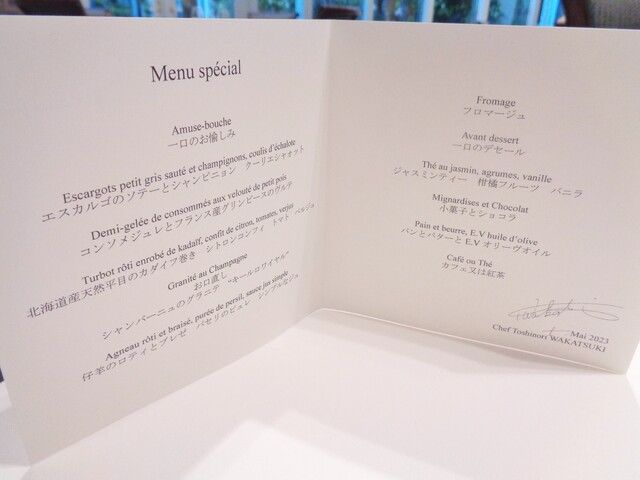 Menu spécial
Amuse-bouche
一口のお愉しみ
Escargots petit gris sauté et champignons, coulis d'échalote
エスカルゴのソテーとシャンピニョン クーリエシャロット
Demi-gelée de consommés aux velouté de petit pois
コンソメジュレとフランス産グリンピースのヴルテ
Turbot rôti enrobé de kadaïf, confit de citron, tomates, verjus
北海道産天然平目のカダイフ巻き シトロンコンフィ トマト ベルジュ
Granité au Champagne
お口直し
シャンパーニュのグラニテ "キールロワイヤル"
Agneau rôti et braisé, purée de persil, sauce jus simple
仔羊のロティとブレゼ パセリのピュレ シンプルなジュ
Fromage
フロマージュ
Avant dessert
一口のデセール
Thé au jasmin, agrumes, vanille
ジャスミンティー 柑橘フルーツ バニラ
Mignardises et Chocolat
小菓子とショコラ
Pain et beurre, E.V huile d'olive
パンとバターと E.V オリーヴオイル
Café ou Thé
カフェ又は紅茶
Mai 2023
Chef Toshinori WAKATSUKI